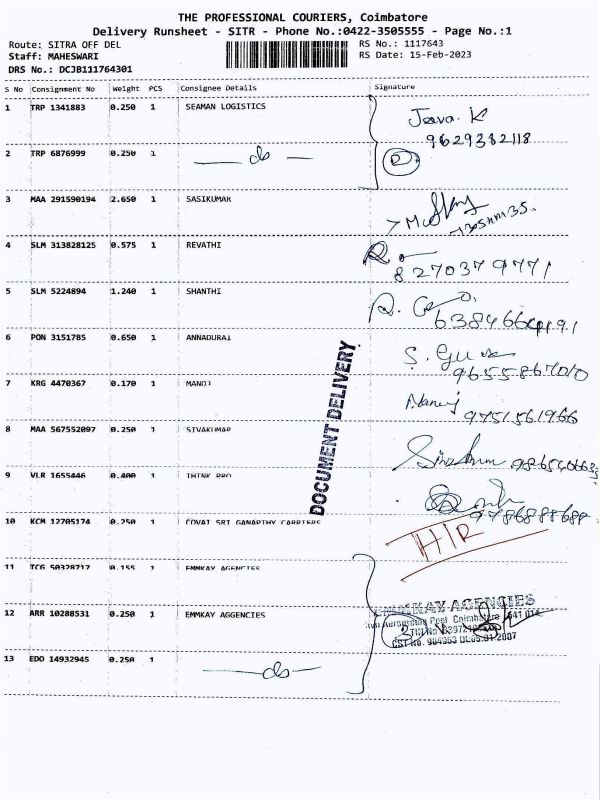 THE PROFESSIONAL COURIERS, Coimbatore
Delivery Runsheet - SITR - Phone No.:0422-3505555 - Page No.:1
Route: SITRA OFF DEL
RS No.: 1117643
Staff: MAHESWARI
RS Date: 15-Feb-2023
DRS No.: DCJB111764301
S No Consignment No Weight PCS Consignee Details Signature
1 TRP 1341883 0.250 1 SEAMAN LOGISTICS
9629382118
2 TRP 6876999 0.250 1 do
3 MAA 291590194 2.650 1 SASIKUMAR
4 SLM 313828125 0.575 1 REVATHI
8270379771
5 SLM 5224894 1.240 1 SHANTHI
6 PON 3151785 0.650 1 ANNADURAI
7 KRG 4470367 0.170 1 MANOJ
9751561966
8 MAA 567552097 0.250 1 SIVAKUMAR
9 VLR 1655446 0.400 1 THINK PRO
DOCUMENT DELIVERY
10 KCM 12705174 0.250 1 COVAI SRI GANAPTHY CARRIERS
H/R
11 TCG 50328717 0.155 1 EMMKAY AGENCIES
12 ARR 10288531 0.250 1 EMMKAY AGGENCIES
EMMKAY AGENCIES
13 EDO 14932945 0.250 1 do